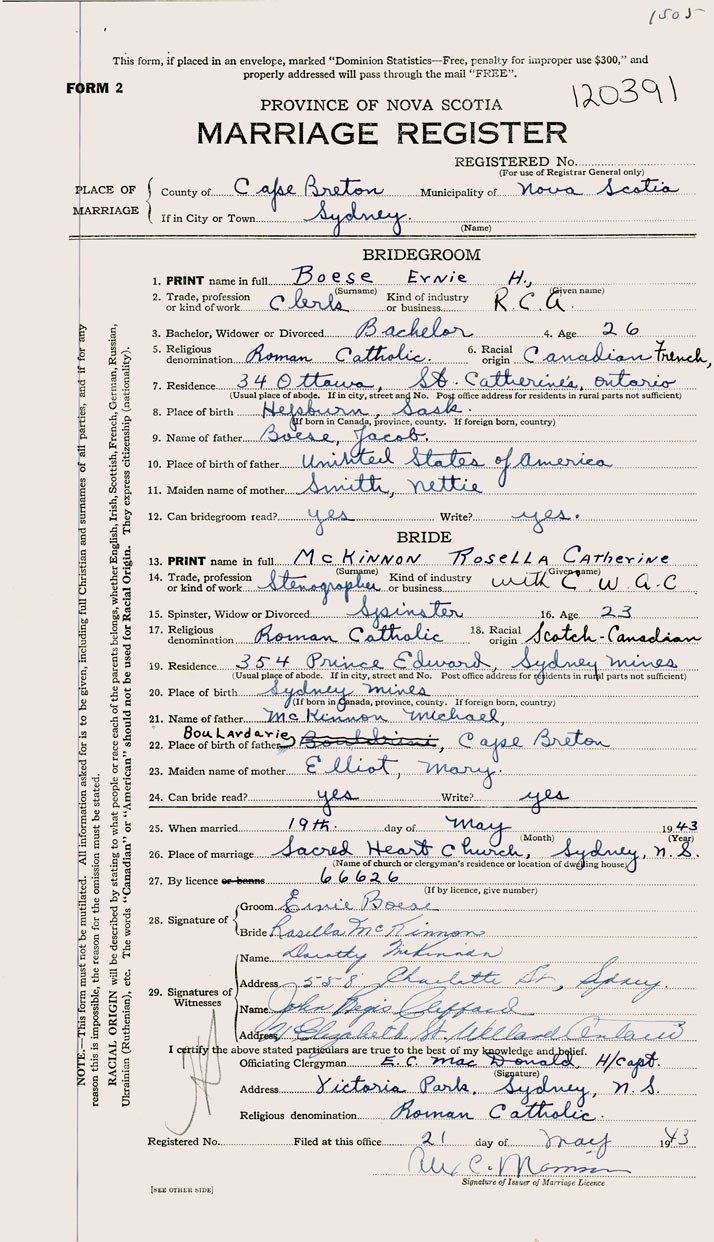 1505
This form, if placed in an envelope, marked "Dominion Statistics—Free, penalty for improper use $300," and
properly addressed will pass through the mail "FREE".
FORM 2
120391
PROVINCE OF NOVA SCOTIA
MARRIAGE REGISTER
REGISTERED No.
(For use of Registrar General only)
PLACE OF MARRIAGE
County of Cape Breton Municipality of Nova Scotia
If in City or Town Sydney.
(Name)
BRIDEGROOM
1. PRINT name in full Boese Ernie H.,
(Surname) (Given name)
2. Trade, profession or kind of work Clerk Kind of industry or business R.C.A.
3. Bachelor, Widower or Divorced Bachelor 4. Age 26
5. Religious denomination Roman Catholic. 6. Racial origin Canadian French,
7. Residence 34 Ottawa, St. Catherine's, Ontario
(Usual place of abode. If in city, street and No. Post office address for residents in rural parts not sufficient)
8. Place of birth Hepburn, Sask.
(If born in Canada, province, county. If foreign born, country)
9. Name of father Boese, Jacob.
10. Place of birth of father United States of America
11. Maiden name of mother Smith, Nettie
12. Can bridegroom read? yes Write? yes.
BRIDE
13. PRINT name in full McKinnon Rosella Catherine
(Surname) (Given name)
14. Trade, profession or kind of work Stenographer Kind of industry or business with C.W.A.C
15. Spinster, Widow or Divorced Spinster 16. Age 23
17. Religious denomination Roman Catholic 18. Racial origin Scotch-Canadian
19. Residence 354 Prince Edward, Sydney Mines
(Usual place of abode. If in city, street and No. Post office address for residents in rural parts not sufficient)
20. Place of birth Sydney Mines
(If born in Canada, province, county. If foreign born, country)
21. Name of father McKinnon Michael,
Boulardarie
22. Place of birth of father Cape Breton
23. Maiden name of mother Elliot, Mary.
24. Can bride read? yes Write? yes
25. When married 19th. day of May 1943
(Month) (Year)
26. Place of marriage Sacred Heart Church, Sydney, N.S.
(Name of church or clergyman's residence or location of dwelling house)
27. By licence or banns 66626
(If by licence, give number)
28. Signature of
Groom Ernie Boese
Bride Rosella McKinnon
29. Signatures of Witnesses
Name Dorothy McKinnon
Address 558 Charlotte St, Sydney
Name John Regis Clifford
Address Elizabeth St. Welland Ontario
I certify the above stated particulars are true to the best of my knowledge and belief.
Officiating Clergyman E.C. MacDonald, H/Capt.
(Signature)
Address Victoria Park, Sydney, N.S.
Religious denomination Roman Catholic.
Registered No. Filed at this office 21 day of May 1943
Signature of Issuer of Marriage Licence
[SEE OTHER SIDE]
NOTE.—This form must not be mutilated. All information asked for is to be given, including full Christian and surnames of all parties, and if for any
reason this is impossible, the reason for the omission must be stated.
RACIAL ORIGIN will be described by stating to what people or race each of the parents belongs, whether English, Irish, Scottish, French, German, Russian,
Ukrainian (Ruthenian), etc. The words "Canadian" or "American" should not be used for Racial Origin. They express citizenship (nationality).